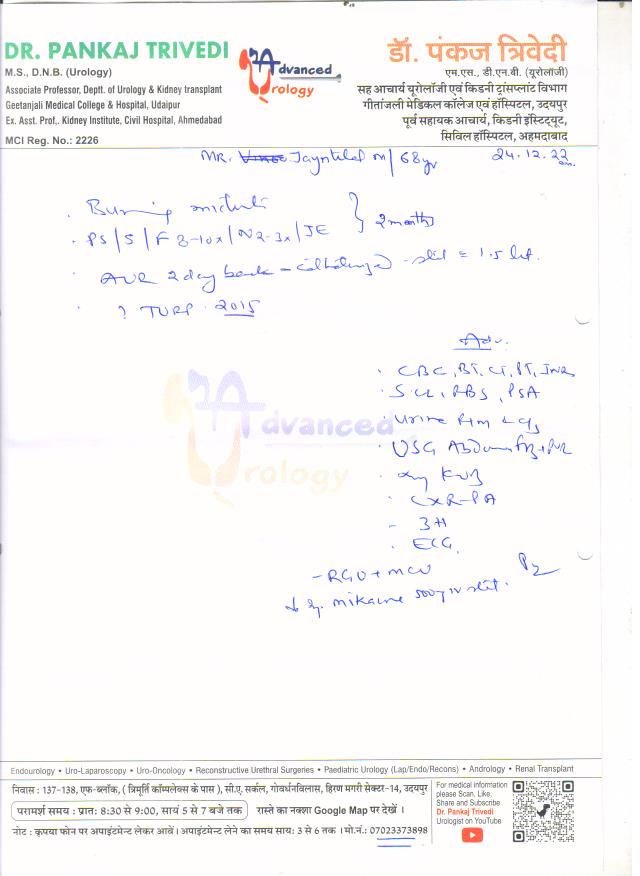 DR. PANKAJ TRIVEDI
M.S., D.N.B. (Urology)
Associate Professor, Deptt. of Urology & Kidney transplant
Geetanjali Medical College & Hospital, Udaipur
Ex. Asst. Prof,. Kidney Institute, Civil Hospital, Ahmedabad
MCI Reg. No.: 2226
Advanced
Urology
डॉ. पंकज त्रिवेदी
एम.एस., डी.एन.बी. (यूरोलॉजी)
सह आचार्य यूरोलॉजी एवं किडनी ट्रांसप्लांट विभाग
गीतांजली मेडिकल कॉलेज एवं हॉस्पिटल, उदयपुर
पूर्व सहायक आचार्य, किडनी इंस्टिट्यूट,
सिविल हॉस्पिटल, अहमदाबाद
MR. Jayntilal M/68yr 24.12.22
Burning
PS/S/F 8-10x/N 2-3x/ 2 months
AUR 2 day back 1.5 lit.
? TURP 2015
Adv.
CBC, BT, CT, PT, INR
RBS, PSA
Urine R+m
USG
Advanced
Urology
CXR-PA
3H
ECG.
- RGU + MCU
mikacine 500
Endourology • Uro-Laparoscopy • Uro-Oncology • Reconstructive Urethral Surgeries • Paediatric Urology (Lap/Endo/Recons) • Andrology • Renal Transplant
निवास : 137-138, एफ-ब्लॉक, ( त्रिमूर्ति कॉम्पलेक्स के पास ), सी.ए. सर्कल, गोवर्धनविलास, हिरण मगरी सेक्टर-14, उदयपुर
परामर्श समय : प्रातः 8:30 से 9:00, सायं 5 से 7 बजे तक रास्ते का नक्शा Google Map पर देखें ।
नोट : कृपया फोन पर अपाइंटमेन्ट लेकर आवें। अपाइंटमेन्ट लेने का समय सायः 3 से 6 तक । मो.नं.: 07023373898
For medical information
please Scan, Like,
Share and Subscribe
Dr. Pankaj Trivedi
Urologist on YouTube